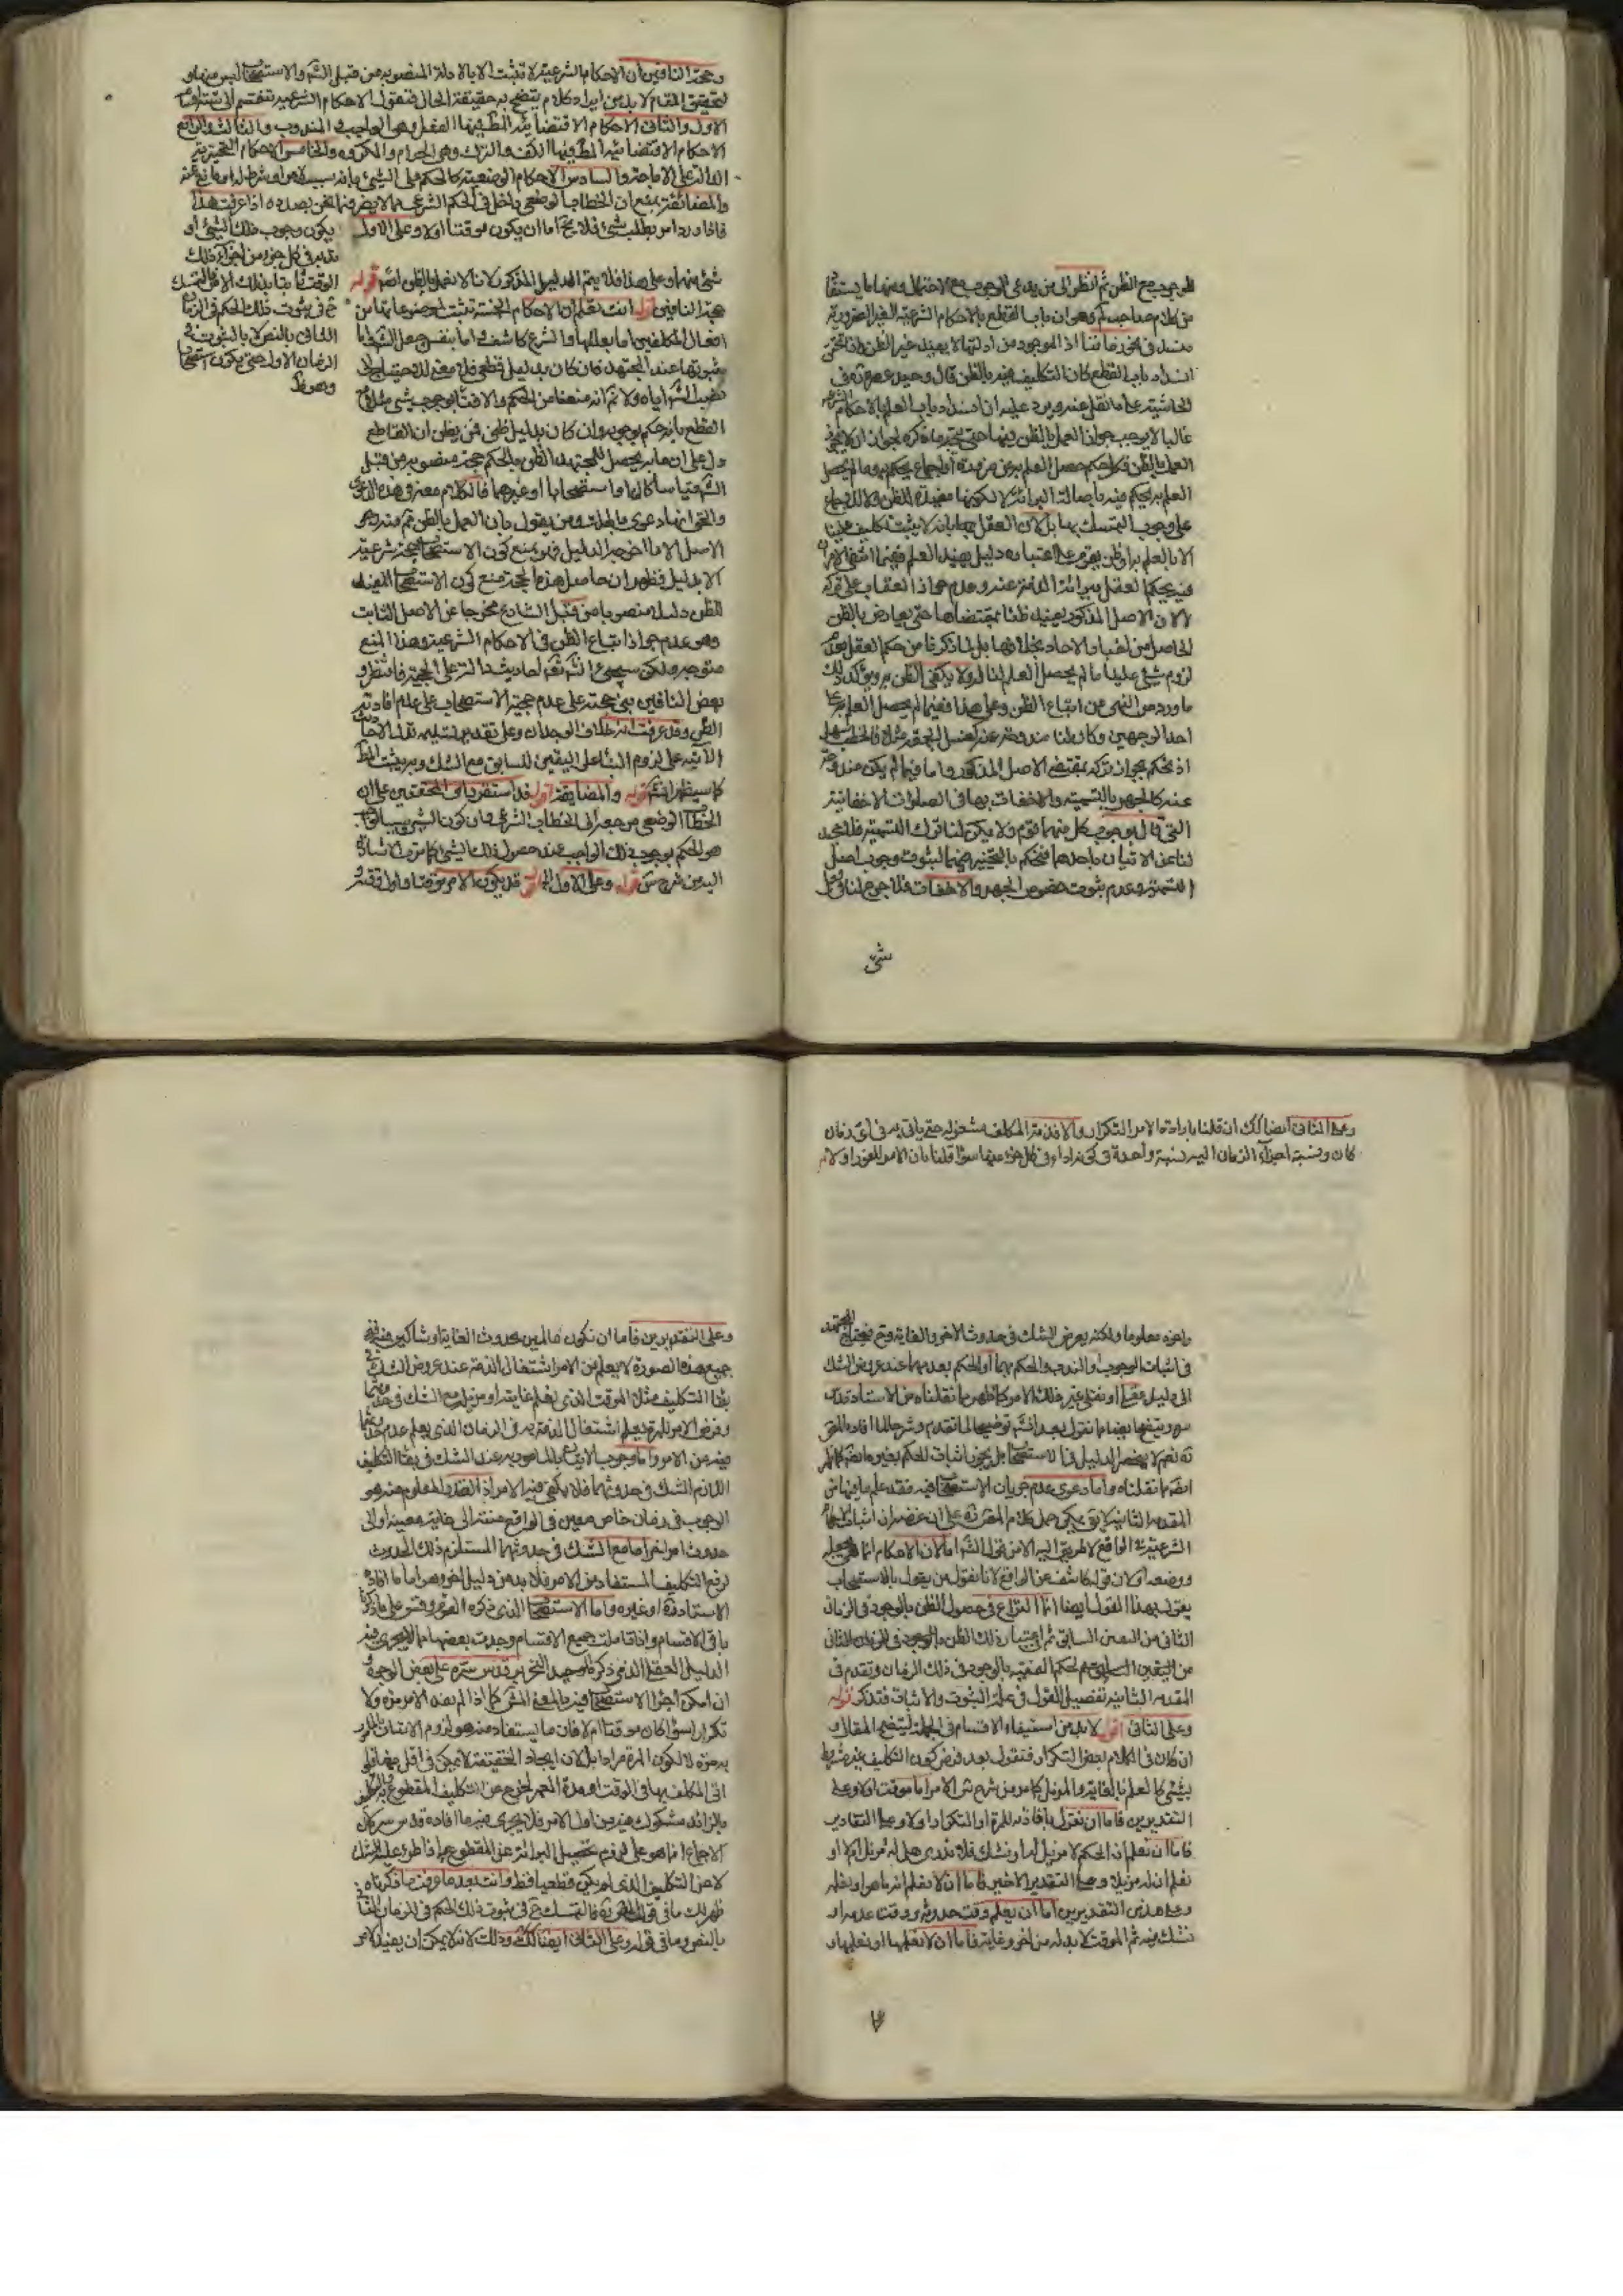 للوجوب مع الظن ثم انظر الى من يدعى الوجوب مع الاحتمال ومنها ما يستفاد
من كلام صاحب لم وهو ان باب القطع بالاحكام الشرعية الغير الضرورية
منسد فى نحو زماننا اذ الموجود من ادلتها لا يفيد غير الظن واذا تحقق
انسداد باب القطع كان التكليف فيه بالظن قال وحيد عصره فى
الحاشية على ما نقل عنه ويرد عليه ان انسداد باب العلم بالاحكام الشرعية
غالبا لا يوجب جواز العمل بالظن فيها حتى يتجه ما ذكره لجواز ان لا يجوز
العمل بالظن فكل حكم حصل العلم به من ضرورة أو اجماع يحكم به وما لم يحصل
العلم به يحكم فيه باصالة البرائة لا لكونها مفيدة للظن ولا للاجماع
على وجوب التمسك بها بل لان العقل يحكم بانه لا يثبت تكليف علينا
الا بالعلم به او ظن يقوم على اعتباره دليل يفيد العلم ففيما انتفى الامران
فيه يحكم العقل ببرائة الذمة عنه وعدم جواز العقاب على تركه
لا لان الاصل المذكور يفيد ظنا بمقتضاها حتى يعارض بالظن
الحاصل من اخبار الاحاد بخلافها بل لما ذكرنا من حكم العقل بعدم
لزوم شئ علينا ما لم يحصل العلم لنا به ولا يكفى الظن به ويؤكد ذلك
ما ورد من النهى عن اتباع الظن وعلى هذا ففيما لم يحصل العلم به على
احد الوجهين وكان لنا مندوحة عنه كغسل الجمعة مثلا فالخطب سهل
اذ نحكم بجواز تركه بمقتضى الاصل المذكور واما فيما لم يكن مندوحة
عنه كالجهر بالتسمية والاخفات بها فى الصلوات الاخفاتية
التى قال بوجوب كل منهما قوم ولا يمكن لنا ترك التسمية فلا محيد
لنا عن الاتيان باحدهما فنحكم بالتخيير فيهما لثبوت وجوب اصل
التسمية وعدم ثبوت خصوص الجهر والاخفات فلا حرج لنا فى
شئ
وحجة النافين ان الاحكام الشرعية لا تثبت الا بالادلة المنصوبة من قبل الشر والاستصحاب ليس منها و
لتحقيق المقام لا بد من ايراد كلام يتضح به حقيقة الحال فنقول الاحكام الشرعية تنقسم الى ستة اقسام
الاول والثانى الاحكام الاقتضائية المط فيها الفعل وهى الواجب والمندوب والثالث والرابع
الاحكام الاقتضائية المط فيها الكف والترك وهى الحرام والمكروه والخامس الاحكام التخييرية
الدالة على الاباحة والسادس الاحكام الوضعية كالحكم على الشئ بانه سبب لامر او شرط له او مانع عنه
والمضائقة بمنع ان الخطاب الوضعى داخل فى الحكم الشرعى مما لا يضر فيما نحن بصدده اذا عرفت هذا
فاذا ورد امر بطلب شئ فلا يخ اما ان يكون موقتا او لا وعلى الاول يكون وجوب ذلك الشئ او
ندبه فى كل جزء من اجزاء ذلك
الوقت ثابتا بذلك الامر فالتمسك
ح فى ثبوت ذلك الحكم فى الزمان
الثانى بالنص لا بالثبوت فى
الزمان الاول حتى يكون استصحابا
وهو ظ
شئ منهما وعلى هذا فلا يتم الدليل المذكور لانا لا نعمل بالظن اصلا قوله
حجة النافين اقول انت تعلم ان الاحكام الخمسة تثبت لموضوعاتها من
افعال المكلفين اما بعللها والشرع كاشف او اما بنفس جعل الشر واما
ثبوتها عند المجتهد فان كان بدليل قطعى فلا معنى للاحتياج الى
نصب الشر اياه ولا ثم انه منعنا من الحكم والافتاء بوجوب شئ مثلا مع
القطع بانه حكم بوجوبه وان كان بدليل ظنى فمن يظن ان القاطع
دل على ان ما به يحصل للمجتهد الظن بالحكم حجة منصوبة من قبل
الشر قياسا كان او استصحابا او غيرهما فالكلام معه فى هذه الدعوى
والحق انها دعوى باطلة ومن يقول بان العمل بالظن ثم منهى عنه
الاصل الا ما اخرجه الدليل فهو يمنع كون الاستصحاب حجة شرعية
الا بدليل فظهر ان حاصل هذه الحجة منع كون الاستصحاب المفيد
للظن دليلا منصوبا من قبل الشارع مخرجا عن الاصل الثابت
وهو عدم جواز اتباع الظن فى الاحكام الشرعية وهذا المنع
متوجه ولكن سيجئ انشاء الله تعالى احاديث دالة على الحجية فانتظر و
بعض النافين بنى حجته على عدم حجية الاستصحاب على عدم افادته
الظن وقد عرفت انه خلاف الوجدان وعلى تقدير تسليمه تدل الاحاديث
الآتية على لزوم البناء على اليقين السابق مع الشك وبه يثبت المط
كما سيظهر انشاء قوله والمضايقة اقول قد استقر راى المحققين على ان
الخطاب الوضعى مرجعه الى الخطاب الشرعى وان كون الشئ سببا لواجب
هو الحكم بوجوب ذلك الواجب عند حصول ذلك الشئ كما مرت الاشارة
اليه من شرح س قوله وعلى الاول الخ اقول قد يكون الامر موقتا واول وقته و
وعلى الثانى ايضا كك ان قلنا بافادة الامر التكرار والا فذمة المكلف مشغولة حتى ياتى به فى اى زمان
كان ونسبة اجزاء الزمان اليه نسبة واحدة فى كونه اداء فى كل جزء منها سواء قلنا بان الامر للفور او لا
واخره معلوما ولكنه يعرض الشك فى حدوث الاخر والغاية وح فيحتاج المجتهد
فى اثبات الوجوب او الندب والحكم بهما أو الحكم بعدمهما عند عروض الشك
الى دليل عقلى او نقلى غير ذلك الامر كما ظهر مما نقلناه من الاستاد قدس
سره ويتضح ايضا مما نقول بعد انشاء توضيحا لما تقدم وشرحا لما افاده المص
ره نعم لا ينحصر الدليل فى الاستصحاب بل يجوز اثبات الحكم بغيره ايضا كما ظهر
ايضا مما نقلناه واما دعوى عدم جريان الاستصحاب فيه فقد علم ما فيها من
المقدمة الثانية لا يق يمكن حمل كلام المص ره على ان غرضه ان اثبات الحكم
الشرعى فى الواقع لا طريق اليه الا من قول الشر اما لان الاحكام انما هى بجعله
ووضعه او لان قوله كاشف عن الواقع لانا نقول من يقول بالاستصحاب
يقول بهذا القول ايضا انما النزاع فى حصول الظن بالوجود فى الزمان
الثانى من اليقين السابق ثم اعتبار ذلك الظن بالوجود فى الزمان الثانى
من اليقين السابق ثم لحكم الفقيه بالوجود فى ذلك الزمان وتقدم فى
المقدمة الثانية تفصيل القول فى علة الثبوت والاثبات فتذكر قوله
وعلى الثانى اقول لابد من استيفاء الاقسام فى الجملة ليتضح المقال و
ان كان فى الكلام بعض التكرار فنقول بعد فرض كون التكليف غير مشروط
بشئ كالعلم بالغاية والمزيل كما مر من شرح س الامر اما موقت او لا وعلى
التقديرين فاما ان نقول بافادته للمرة او التكرار او لا وعلى التقادير
فاما ان نعلم ان الحكم لا مزيل له او نشك فلا ندرى هل له مزيل ام لا او
نعلم ان له مزيلا وعلى التقدير الاخير فاما ان لا نعلم انه ما هو او نعلمه
وعلى هذين التقديرين اما ان يعلم وقت حدوثه ووقت عدمه او
نشك فيه ثم الموقت لا بد له من اخر وغاية فاما ان لا نعلمها او نعلمها و
وعلى التقديرين فاما ان نكون عالمين بحدوث الغاية او شاكين فيه ففى
جميع هذه الصورة لا يعلم من الامر اشتغال الذمة عند عروض الشك فى
بقاء التكليف مثل الموقت الذى يعلم غايته او مزيله مع الشك فى حدوثهما
وفرض الامر للمرة يعلم اشتغال الذمة به فى الزمان الذى يعلم عدم حدوثهما
فيه من الامر واما وجوب الاتيان بالمامور به عند الشك فى بقاء التكليف
اللازم الشك فى حدوثهما فلا يكفى فيه الامر اذ القدر المعلوم منه هو
الوجوب فى زمان خاص معين فى الواقع منته الى غاية معينة او الى
حدوث امر اخر اما مع الشك فى حدوثهما المستلزم ذلك الحدوث
لرفع التكليف المستفاد من الامر فلا بد من دليل اخر وهو اما ما افاده
الاستاد ره او غيره واما الاستصحاب الذى ذكره القوم وقس على ما ذكرنا
باقى الاقسام واذا تاملت جميع الاقسام وجدت بعضها مما لا يجرى فيه
الدليل العقلى الذى ذكره الوحيد النحرير قدس سره على بعض الوجوه و
ان امكن اجراء الاستصحاب فيه بالمعنى المش كما اذا لم يفد الامر مرة ولا
تكرارا سواء كان موقتا ام لا فان ما يستفاد منه هو لزوم الاتيان بالمامور
به مرة لا لكون المرة مرادا بل لان ايجاد الحقيقة لا يمكن فى اقل منها فلو
اتى المكلف بها فى الوقت او مدة العمر لخرج عن التكليف المقطوع به والتكليف
بالزائد مشكوك فيه من اول الامر فلا يجرى فيه ما افاده قدس سره لان
الاجماع انما هو على لزوم تحصيل البرائة عن المقطوع به اذا طرء عليه الشك
لا من التكليف الذى لم يكن قطعيا قط وانت بعد ما عرفت ما ذكرناه
ظهر لك ما فى قول المص ره فالتمسك ح فى ثبوت ذلك الحكم فى الزمان الثانى
بالنص وما فى قوله وعلى الثانى ايضا كك وذلك لانه لا يمكن ان يفيد الامر